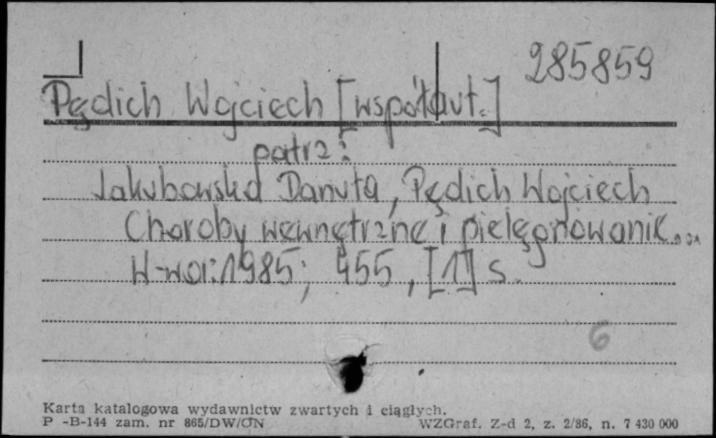 285859
Pędich Wojciech [współaut.]
patrz:
Jakubowska Danuta, Pędich Wojciech
Choroby wewnętrzne i pielęgnowanie...
W-wa: 1985; 455, [1] s.
6
Karta katalogowa wydawnictw zwartych i ciągłych.
P -B-144 zam. nr 865/DW/ON WZGraf. Z-d 2, z. 2/86, n. 7 430 000